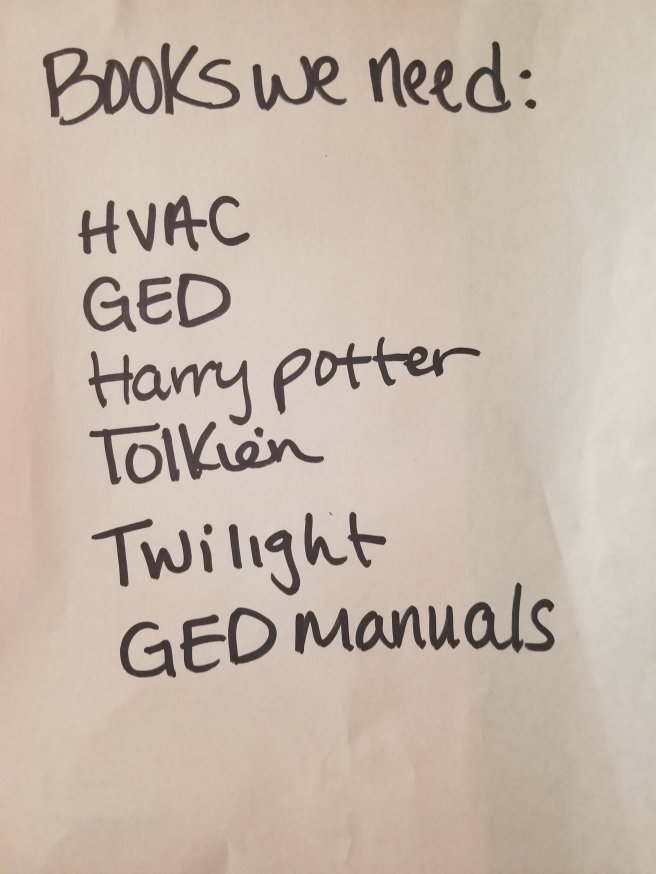 Books we need:
HVAC
GED
Harry potter
Tolkien
Twilight
GED manuals